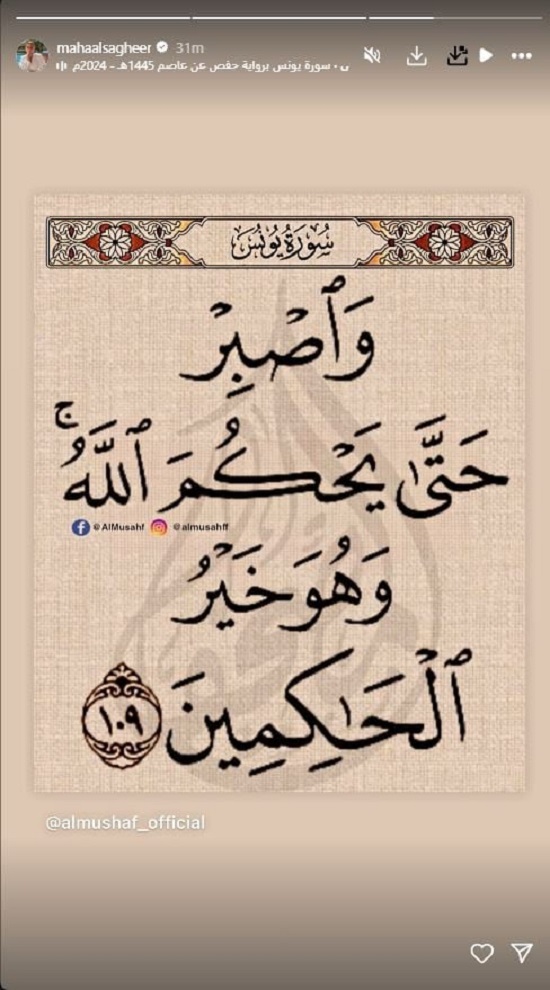 mahaalsagheer 31m
س • سورة يونس برواية حفص عن عاصم 1445هـ - 2024م
سُورَةُ يُونُسَ
وَٱصْبِرْ
حَتَّىٰ يَحْكُمَ ٱللَّهُ ۚ
@AlMusahf @almusahff
وَهُوَ خَيْرُ
ٱلْحَـٰكِمِينَ ١٠٩
@almushaf_official